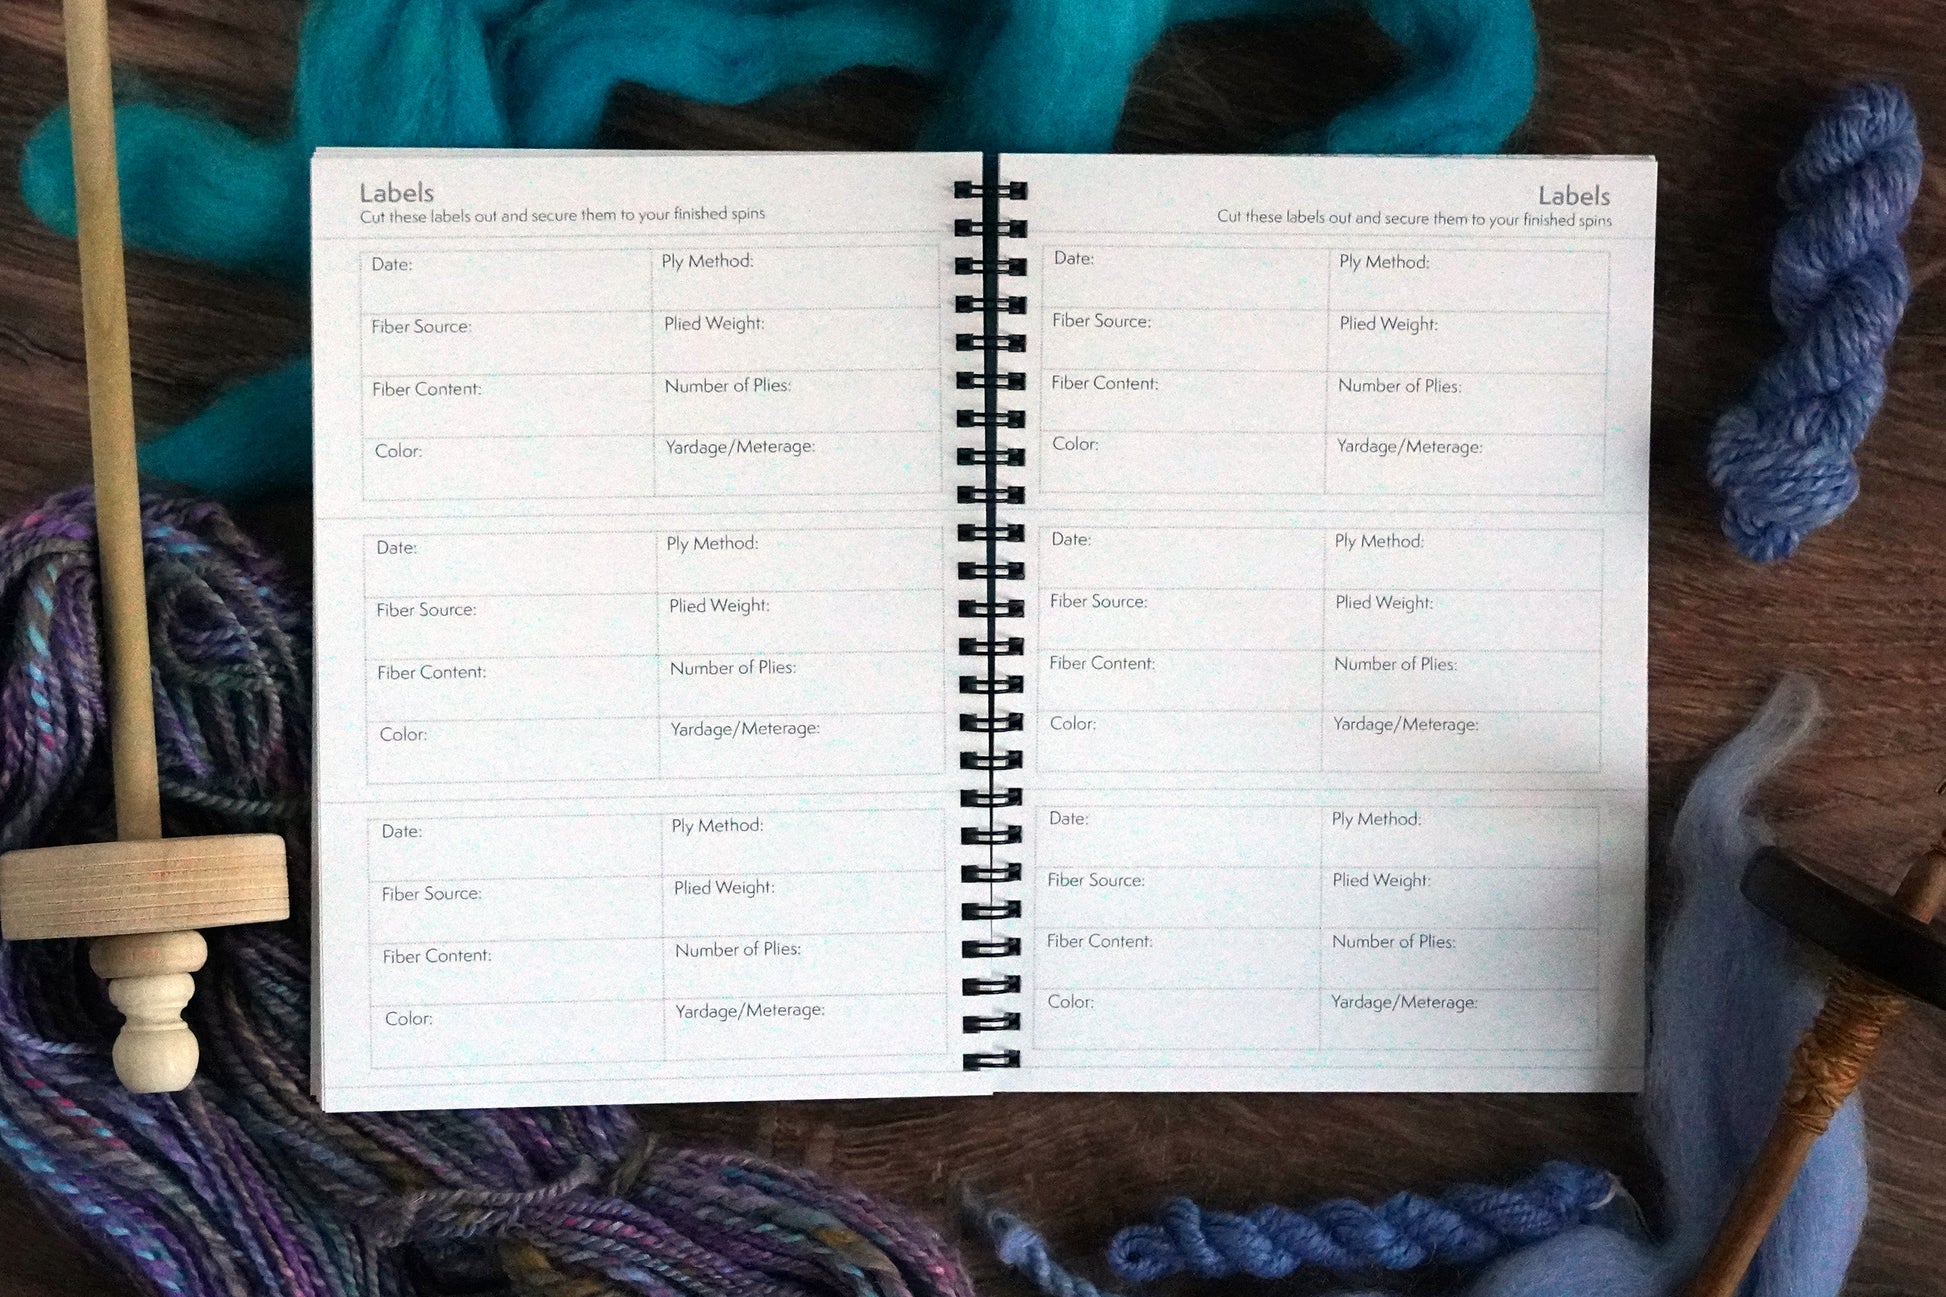 Labels
Cut these labels out and secure them to your finished spins
Date: Ply Method:
Fiber Source: Plied Weight:
Fiber Content: Number of Plies:
Color: Yardage/Meterage:
Date: Ply Method:
Fiber Source: Plied Weight:
Fiber Content: Number of Plies:
Color: Yardage/Meterage:
Date: Ply Method:
Fiber Source: Plied Weight:
Fiber Content: Number of Plies:
Color: Yardage/Meterage:
Labels
Cut these labels out and secure them to your finished spins
Date: Ply Method:
Fiber Source: Plied Weight:
Fiber Content: Number of Plies:
Color: Yardage/Meterage:
Date: Ply Method:
Fiber Source: Plied Weight:
Fiber Content: Number of Plies:
Color: Yardage/Meterage:
Date: Ply Method:
Fiber Source: Plied Weight:
Fiber Content: Number of Plies:
Color: Yardage/Meterage: